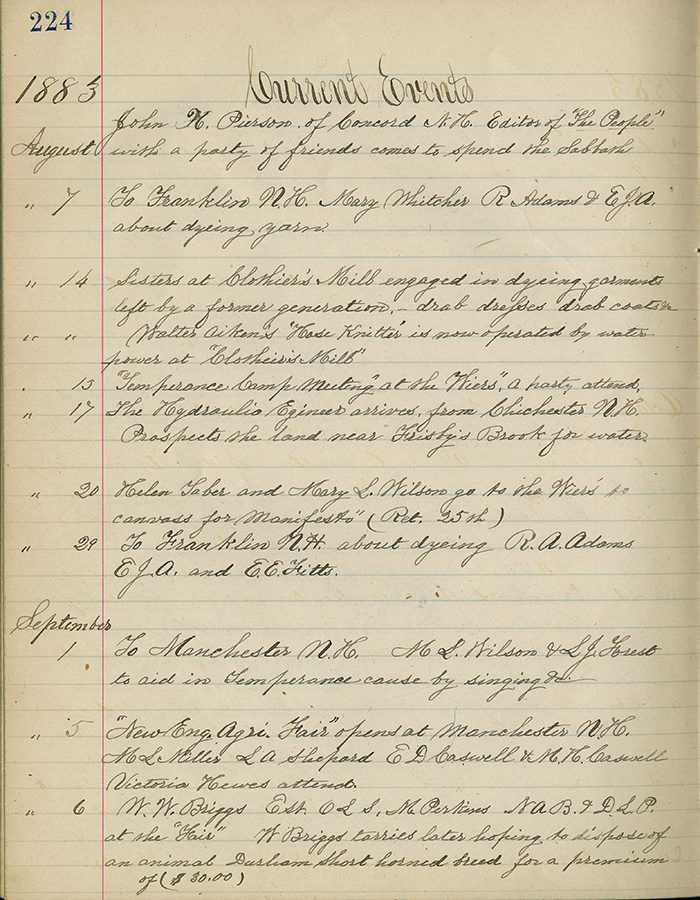 224
Current Events
1883
John N. Pierson of Concord N.H. Editor of "The People"
August with a party of friends comes to spend the Sabbath
" 7 To Franklin N.H. Mary Whitcher R Adams & E.J.A.
about dyeing yarn
" 14 Sisters at Clothier's Mill engaged in dyeing garments
left by a former generation, – drab dresses drab coats &c
" " Walter Aiken's "Hose Knitter" is now operated by water
power at "Clotheir's Mill"
" 15 "Temperance Camp Meeting" at the "Wiers", a party, attend.
" 17 The Hydraulic Egineer arrives, from Chichester N.H.
Prospects the land near Frisby's Brook for water.
" 20 Helen Taber and Mary L. Wilson go to the Wiers to
canvass for Manifesto" (Ret. 25th)
" 29 To Franklin N.H. about dyeing R. A. Adams
E.J.A. and E.E. Fitts.
September
1 To Manchester N.H. M L. Wilson & L J. Forest
to aid in Temperance cause by singing &c
" 5 "New Eng. Agri. Fair" opens at Manchester N.H.
M L Miller L A Shepard E D Caswell & M. H. Caswell
Victoria Hewes attend.
" 6 W. W. Briggs Est. C L S. M. Perkins N A B. & D. L. P.
at the "Fair" W Briggs tarries later hoping to dispose of
an animal Durham Short horned breed for a premium
of ($ 30.00)